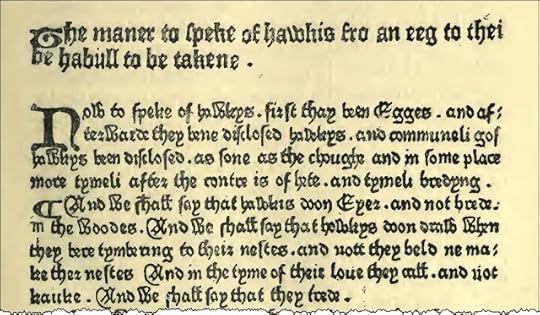 The maner to speke of hawkis fro an eeg to thei
be habull to be takene .
Now to speke of hawkys . first thay been Egges . and af⸗
terwarde they bene disclosed hawkys . and communeli gos
hawkys been disclosed . as sone as the choughe and in some place
more tymeli after the contre is of hete . and tymeli bredyng .
¶ And we shall say that hawkis doon Eyer . and not brede .
in the woodes . And we shall say that hawkys doon draw when
they bere tymbering to their nestes . and nott they beld ne ma⸗
ke ther nestes And in the tyme of their loue they call . and not
kauke . And we shall say that they trede .